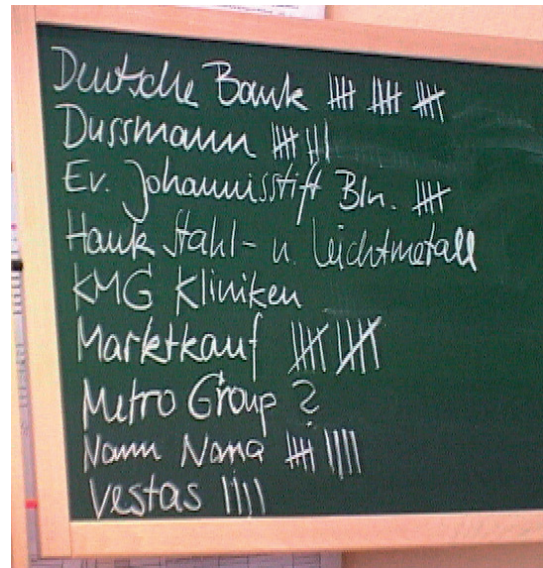 Deutsche Bank 卌 卌 卌
Dussmann 卌 |||
Ev. Johannisstift Bln. 卌
Hauk Stahl- u. Leichtmetall
KMG Kliniken
Marktkauf 卌 卌
Metro Group ?
Nanu Nana 卌 ||||
Vestas ||||